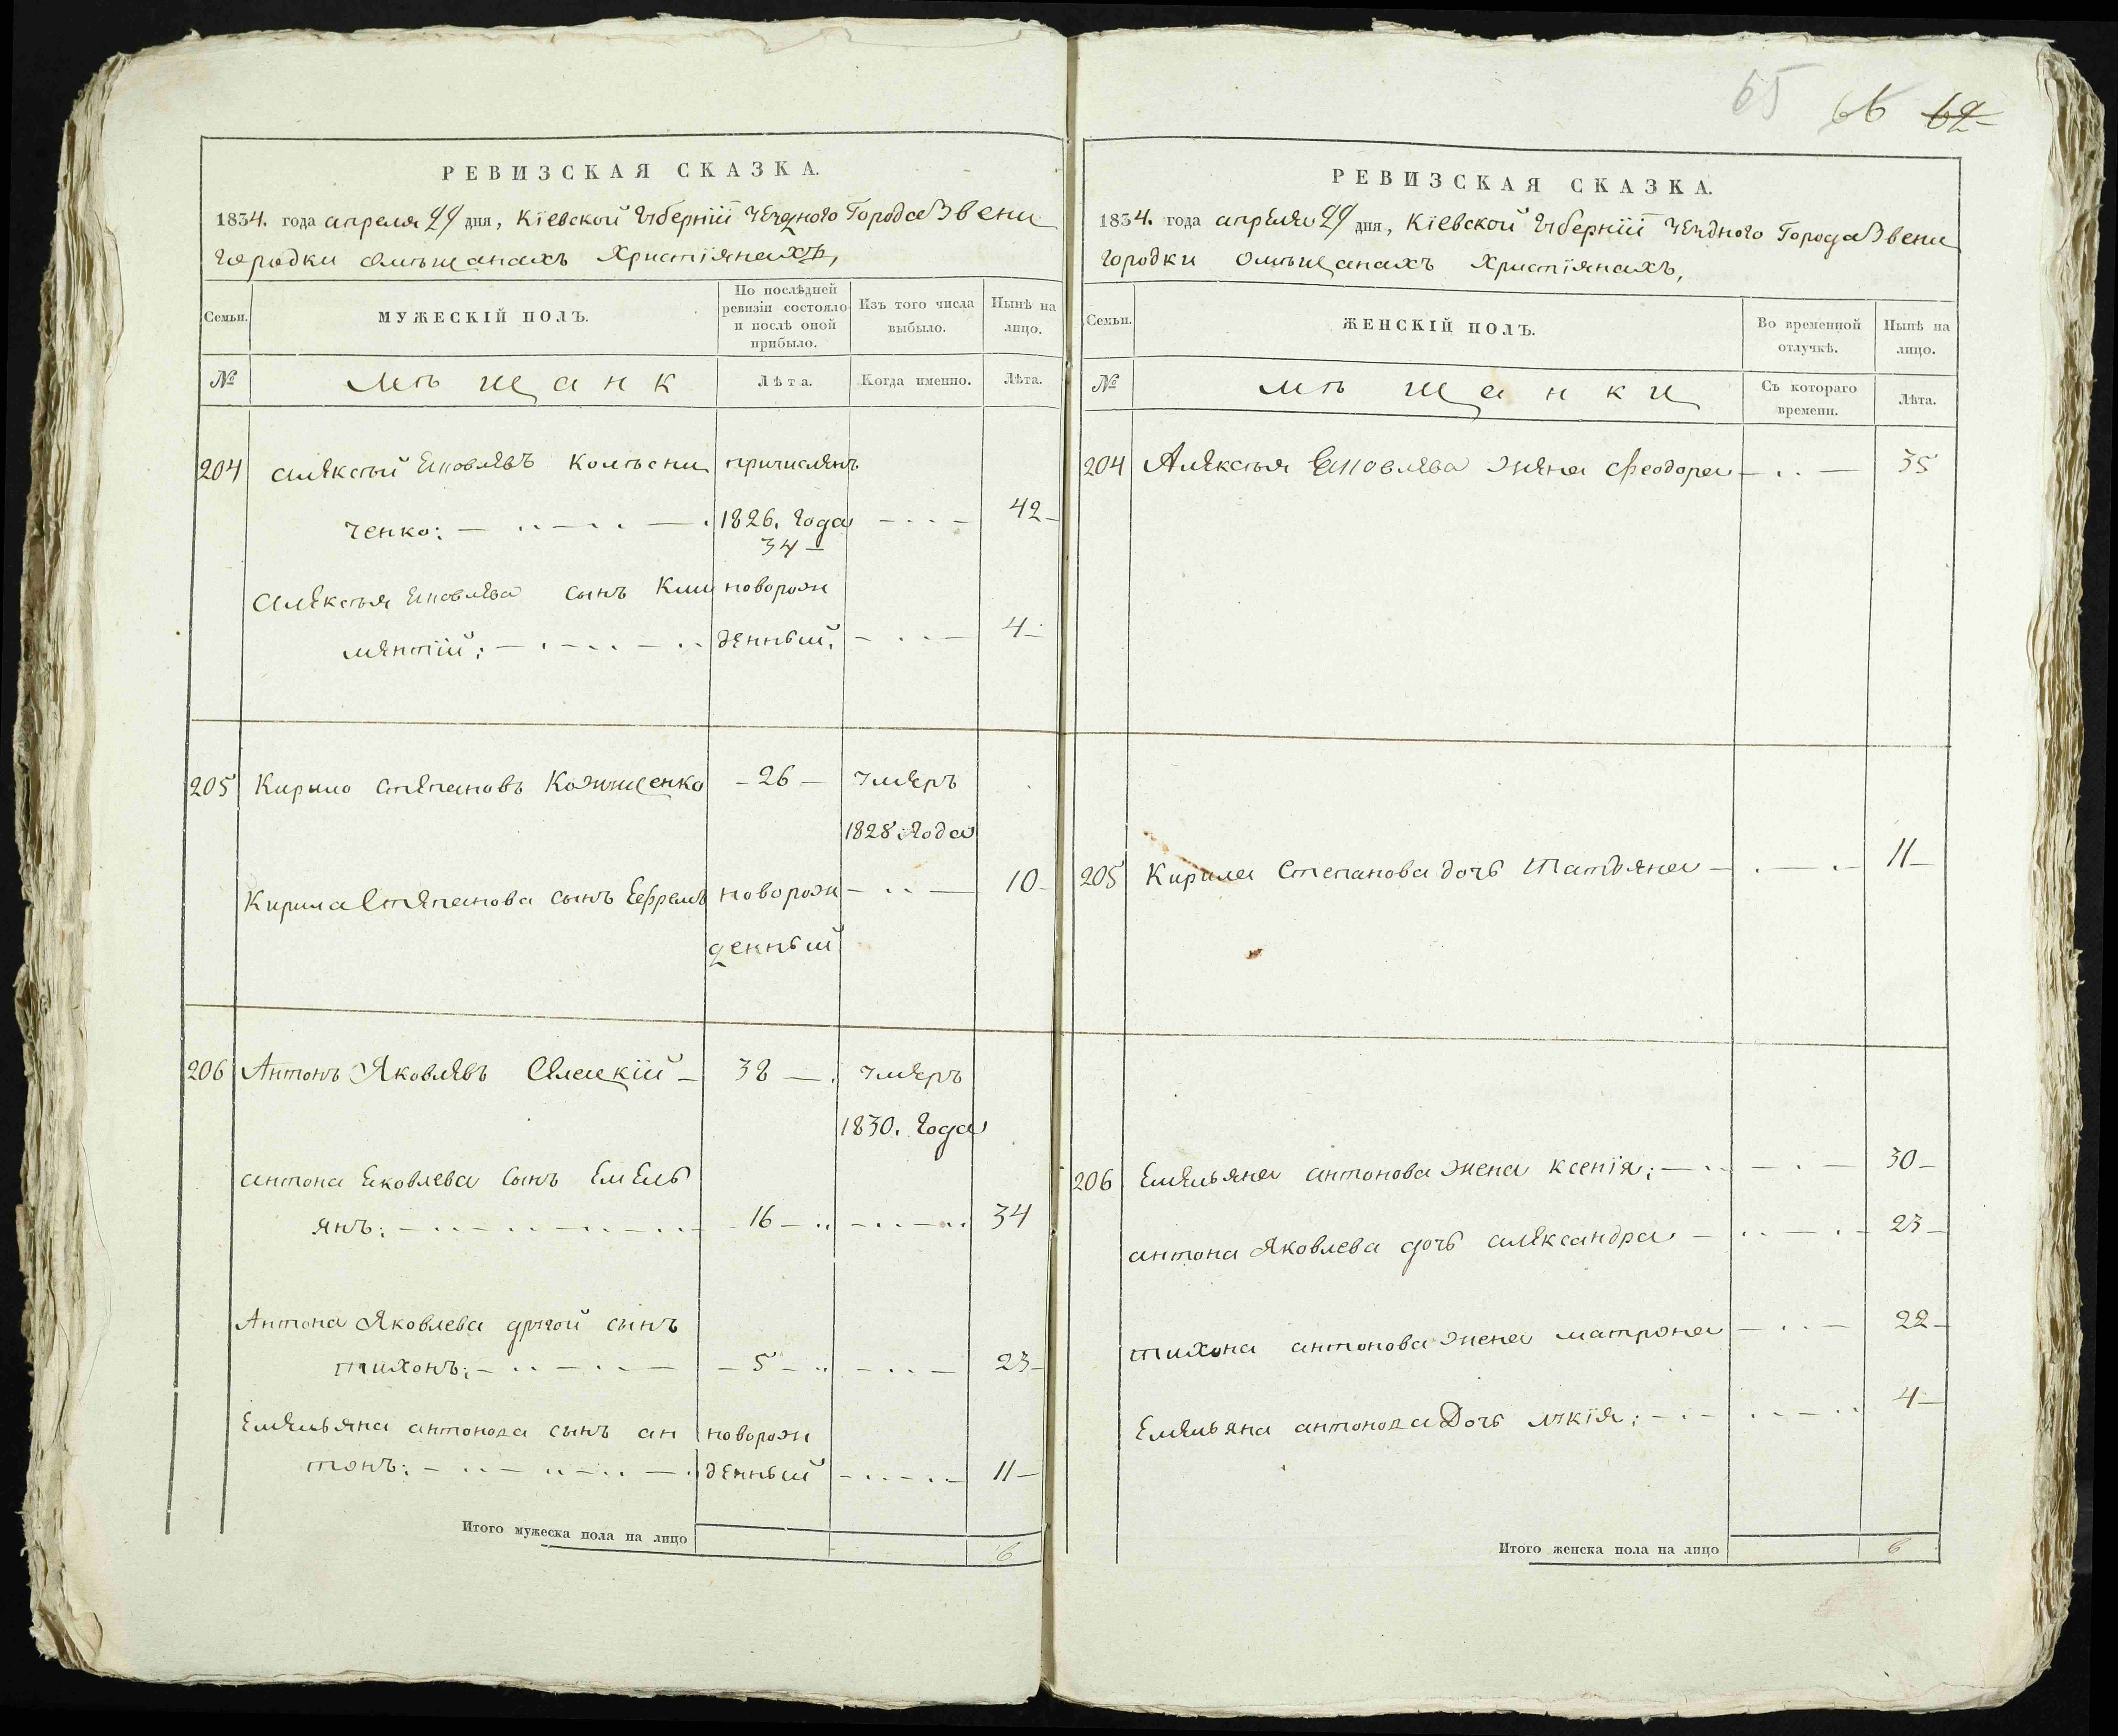 65 66 62
РЕВИЗСКАЯ СКАЗКА.
1834. года апреля 29 дня, Кіевской Губерніи Уездного Города Звени
городки Омещанахъ Христіянахъ,
Семьи. МУЖЕСКІЙ ПОЛЪ. По послѣдней ревизіи состояло и послѣ оной прибыло. Изъ того числа выбыло. Нынѣ на лицо.
№ Мѣщанѣ Лѣта. Когда именно. Лѣта.
204 Алексѣй Яковлевъ Колѣсни причисленъ
ченко: 1826. года 42
34
Алексѣя Яковлева сынъ Кли новорож
ментій; денный. 4
205 Кирило Степановъ Кожищенко 26 умеръ
1828 года
Кирила Степанова сынъ Ефремъ новорож 10
денный
206 Антонъ Яковлевъ 38 умеръ
1830. года
антона Яковлева сынъ Емель
янъ: 16 34
Антона Яковлева другой сынъ
тихонъ: 5 23
Емельяна антонова сынъ ан новорож
тонъ: денный 11
Итого мужеска пола на лицо 6
РЕВИЗСКАЯ СКАЗКА.
1834. года апреля 29 дня, Кіевской Губерніи Уездного Города Звени
городки Омѣщанахъ Христіянахъ,
Семьи. ЖЕНСКІЙ ПОЛЪ. Во временной отлучкѣ. Нынѣ на лицо.
№ Мѣщанки Съ котораго времени. Лѣта.
204 Алексѣя Яковлева жена Феодора 35
205 Кирила Степанова дочь Татьяна 11
206 Емельяна антонова жена ксенія; 30
антона Яковлева дочь александра 23
тихона антонова жена матрона 22
Емельяна антонова Дочь лукія; 4
Итого женска пола на лицо 6